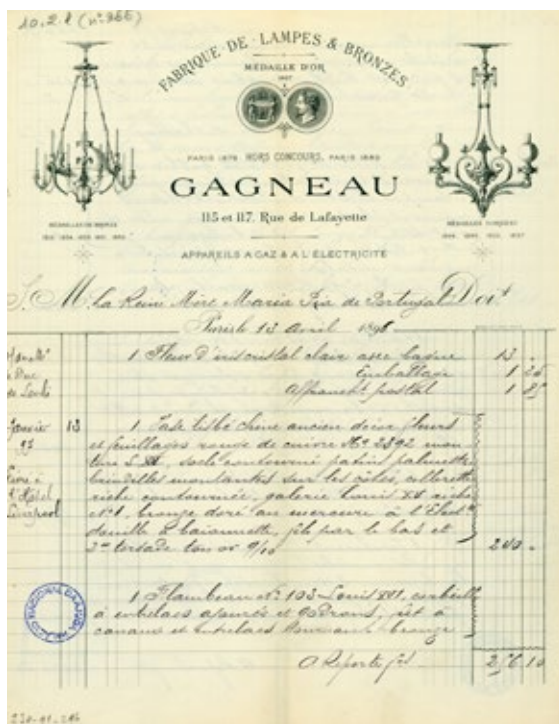 10.2.8 (nº 366)
FABRIQUE DE LAMPES & BRONZES
MÉDAILLE D'OR
1867
PARIS 1878 HORS CONCOURS, PARIS 1889
GAGNEAU
115 et 117, Rue de Lafayette
APPAREILS A GAZ & A L'ÉLECTRICITÉ
MÉDAILLES DE BRONZE
MÉDAILLES D'ARGENT
S. M. La Reine Mère Maria Pia de Portugal Doit
Paris le 13 Avril 1898
1 Fleur d'iris cristal clair avec bague 13 -
Emballage 1 25
Affrancht postal 1 85
Janvier 13 1 Vase
ancien décor fleurs
et feuillages rouge de cuivre Nº 2392 mon
ture L. XV, socle contourné patins palmettes
montantes sur les côtés, collerette
riche contournée, galerie Louis XV riche
Nº 1, bronze doré au mercure à l'Elect
douille à baionnette, fils par le bas et
2m torsade ton or 9/10 240 -
1 Flambeau Nº 103 Louis XVI, corbeille
à entrelacs ajourés et godrons, fût à
canaux et entrelacs bronze
A Reporter frs 256 10